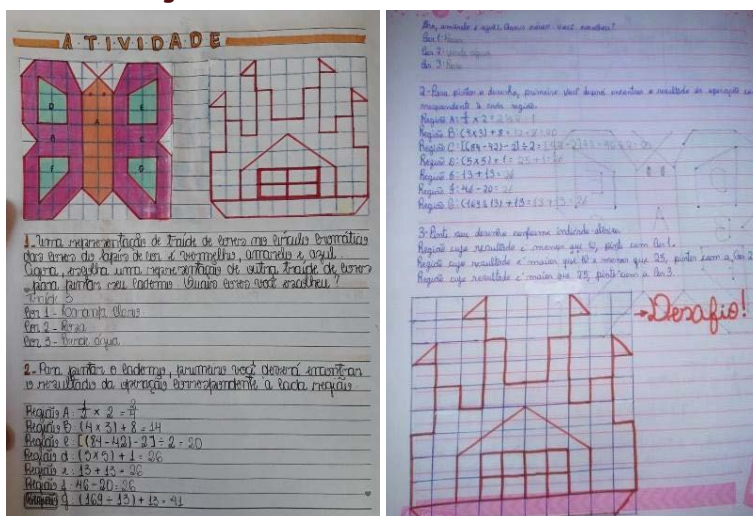 ATIVIDADE
D
E
A
B
C
F
G
1. Uma representação de traíde de cores no círculo cromático
das cores do lápis de cor é vermelho, amarelo e azul.
Agora, escolha uma representação de outra traíde de cores
para pintar seu caderno. Quais cores você escolheu?
Traíde 3
Cor 1 - Laranja
Cor 2 - Rosa
Cor 3 - Verde água
2. Para pintar o caderno, primeiro você deverá encontrar
o resultado da operação correspondente a cada região.
Região A: 1/2 × 2 = 2/4
Região B: (4×3) + 8 = 14
Região C: [(84-42)-2] ÷ 2 = 20
Região d: (5×5) + 1 = 26
Região e: 13 + 13 = 26
Região f: 46 - 20 = 26
Região g: (169 ÷ 13) + 13 = 41
amarelo e azul. Quais cores você escolheu?
Cor 1:
Cor 2: Verde água
Cor 3: Rosa
2- Para pintar o desenho, primeiro você deverá encontrar o resultado da operação
correspondente à cada região.
Região A: 1/2 × 2 =
Região B: (4×3) + 8 = 12 + 8 = 20
Região C: [(84-42)-2] ÷ 2 =
Região D: (5×5) + 1 = 25 + 1 = 26
Região E: 13 + 13 = 26
Região F: 46 - 20 = 26
Região G: (169 ÷ 13) + 13 = 13 + 13 = 26
3- Pinte seu desenho conforme
Região cujo resultado é menor que pinte com Cor 1.
Região cujo resultado é maior que e menor que 25, pinte com a Cor 2
Região cujo resultado é maior que 25, pinte com a Cor 3.
Desafio!